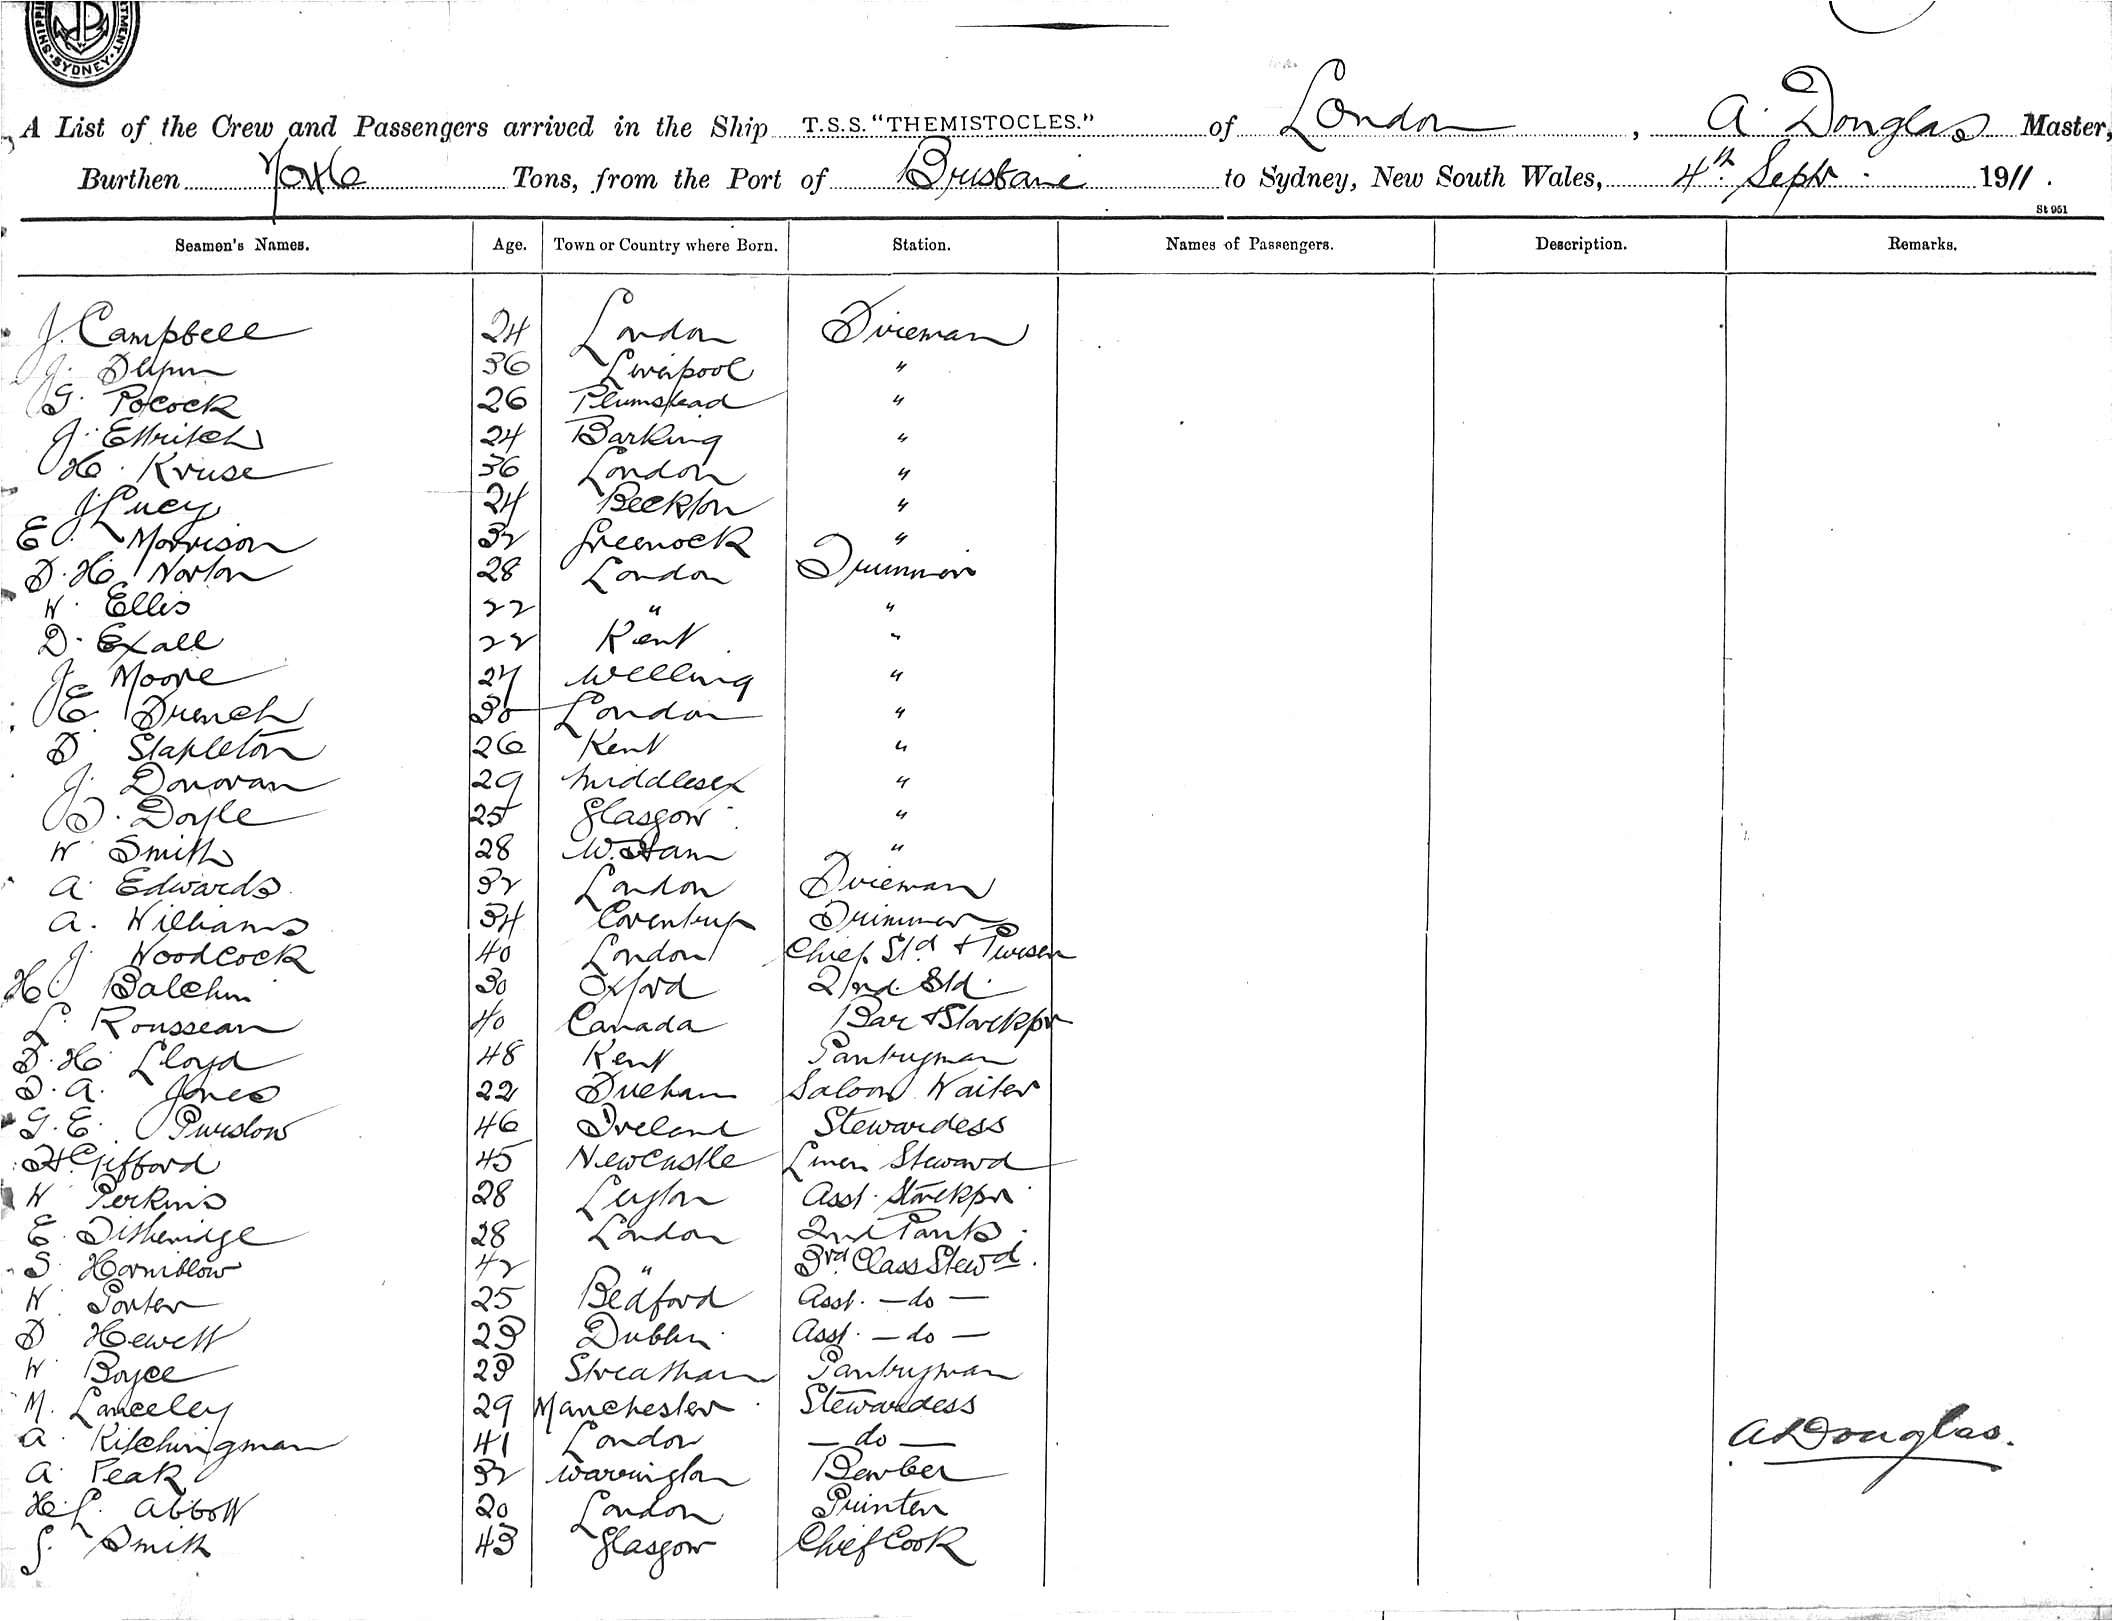 SHIPPING DEPARTMENT. SYDNEY.
A List of the Crew and Passengers arrived in the Ship T.S.S. "THEMISTOCLES." of London, A Douglas Master,
Burthen Tons, from the Port of Brisbane to Sydney, New South Wales, 4th Septr 1911.
St 951
Seamen's Names. Age. Town or Country where Born. Station. Names of Passengers. Description. Remarks.
J. Campbell 24 London Fireman
36 Liverpool "
G. Pocock 26 Plumstead "
J. Ettritch 24 Barking "
H. Kruse 36 London "
J Lucy 24 Beckton "
E Morrison 32 Greenock "
F. H. Norton 28 London Trimmer
W. Ellis 22 " "
D. Exall 22 Kent "
J. Moore 24 Welling "
E French 30 London "
F Stapleton 26 Kent "
J. Donovan 29 Middlesex "
Doyle 25 Glasgow "
W Smith 28 W. Ham "
A. Edwards 32 London Fireman
A. Williams 34 Coventry Trimmer
J. Woodcock 40 London Chief Std & Purser
H. Balchin 30 Oxford 2nd Std.
L. Rousseau 40 Canada Bar & Storekpr
F. H. Lloyd 48 Kent Pantryman
A. Jones 22 Durham Saloon Waiter
G. E. Purslow 46 Ireland Stewardess
Gifford 45 Newcastle Linen Steward
W Perkins 28 Leyton Asst. Storekpr
E. Titheridge 28 London 2nd Pants.
S Horniblow 42 " 3rd Class Stewd.
W. Porter 25 Bedford Asst. — do —
F Hewett 23 Dublin Asst. — do —
W. Boyce 23 Streatham Pantryman
M. Lanceley 29 Manchester Stewardess
A. Kitchingman 41 London — do —
A Douglas.
A. Peak 32 Warrington Barber
H. L. Abbott 20 London Printer
Smith 43 Glasgow Chief Cook